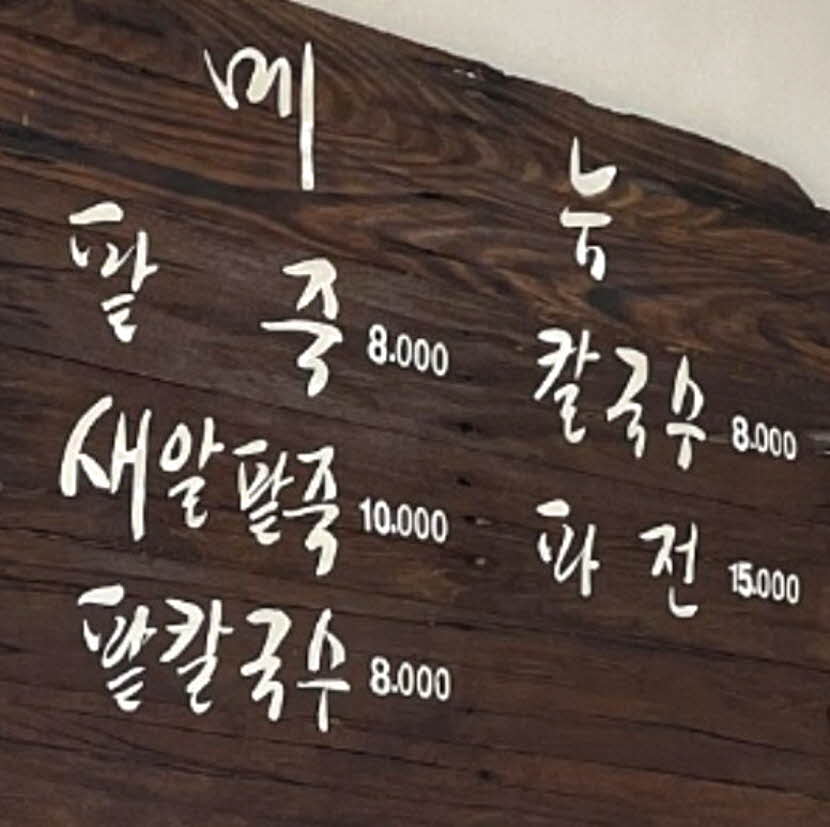 메 뉴
팥 죽 8.000
새알팥죽 10.000
팥칼국수 8.000
칼국수 8.000
파 전 15.000